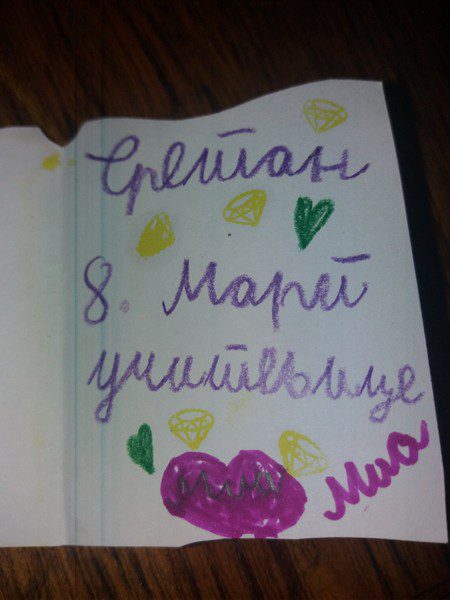 Срећан
8. Март
учитељице
Миа
Миа